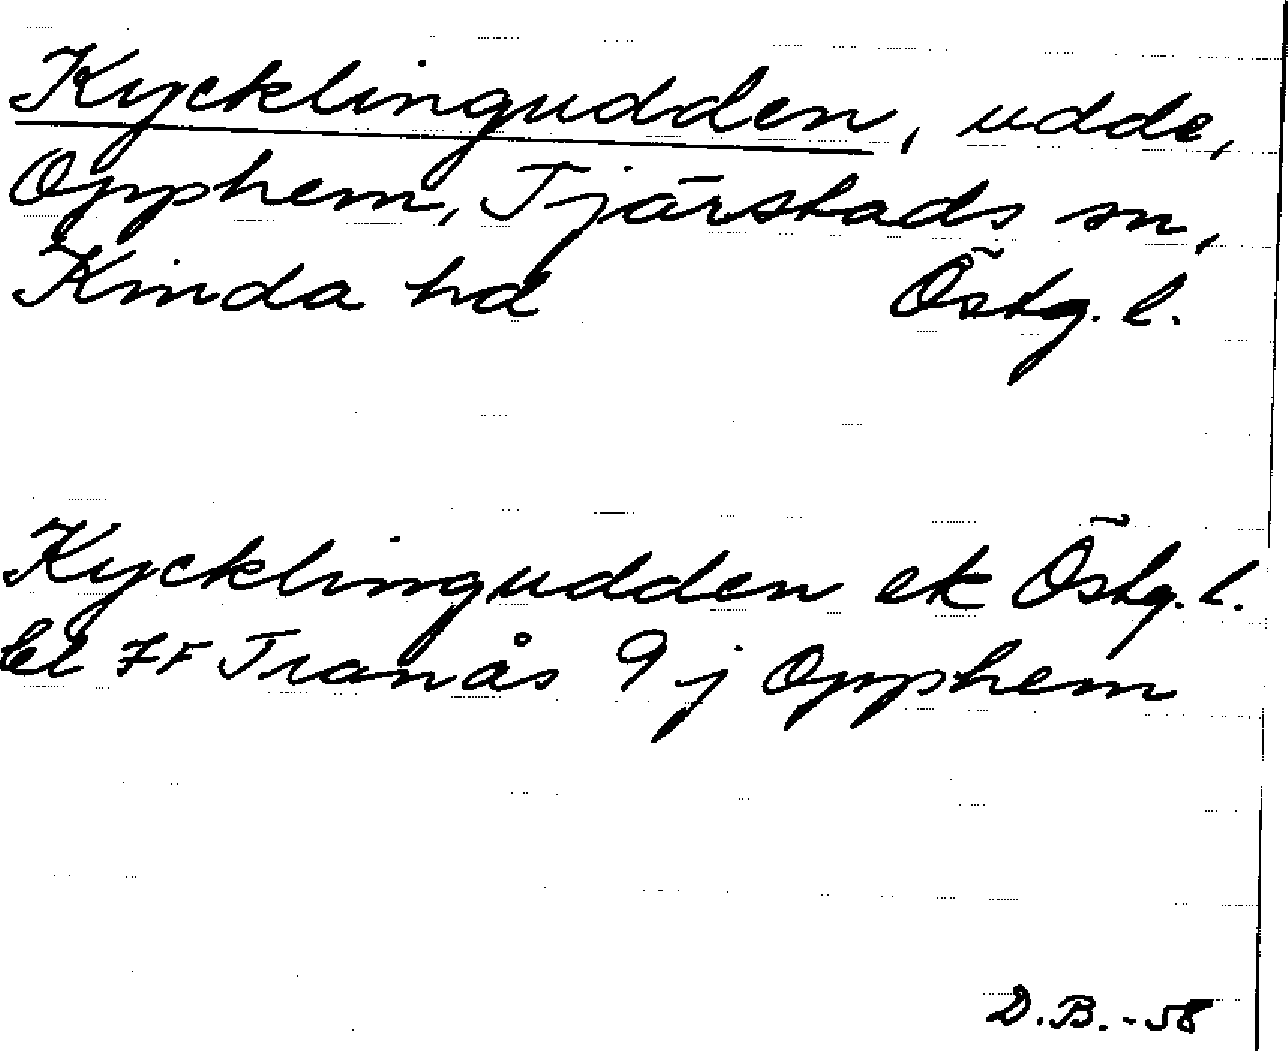 Kycklingudden, udde,
Opphem, Tjärstads sn,
Kinda hd Östg. l.
Kycklingudden ek Östg. l.
bl 7F Tranås 9 j Opphem
D.B. -58